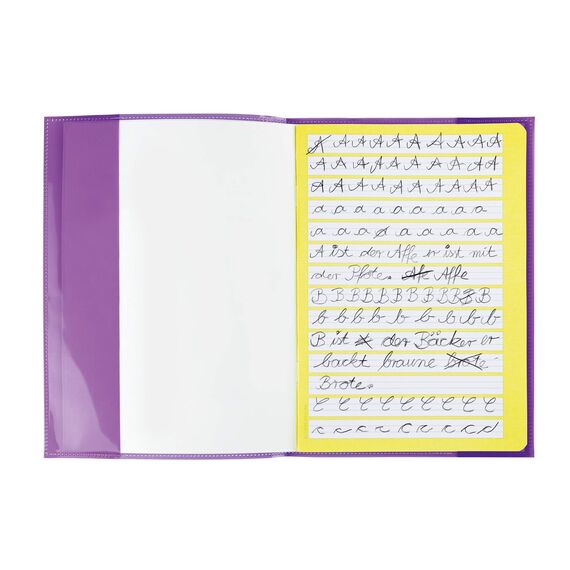 A A A A A A A A A A A
A A A A A A A A A A
A A A A A A A A A A
a a a a a a a a a
a a a a a a a a a
A ist der Affe er ist mit
der Pfote. Affe
B B B B B B B B B B B B
b b b b b b b b b
B ist der Bäcker er
backt braune Brote
Brote.
C C C C C C C C C
c c c c c c c c d